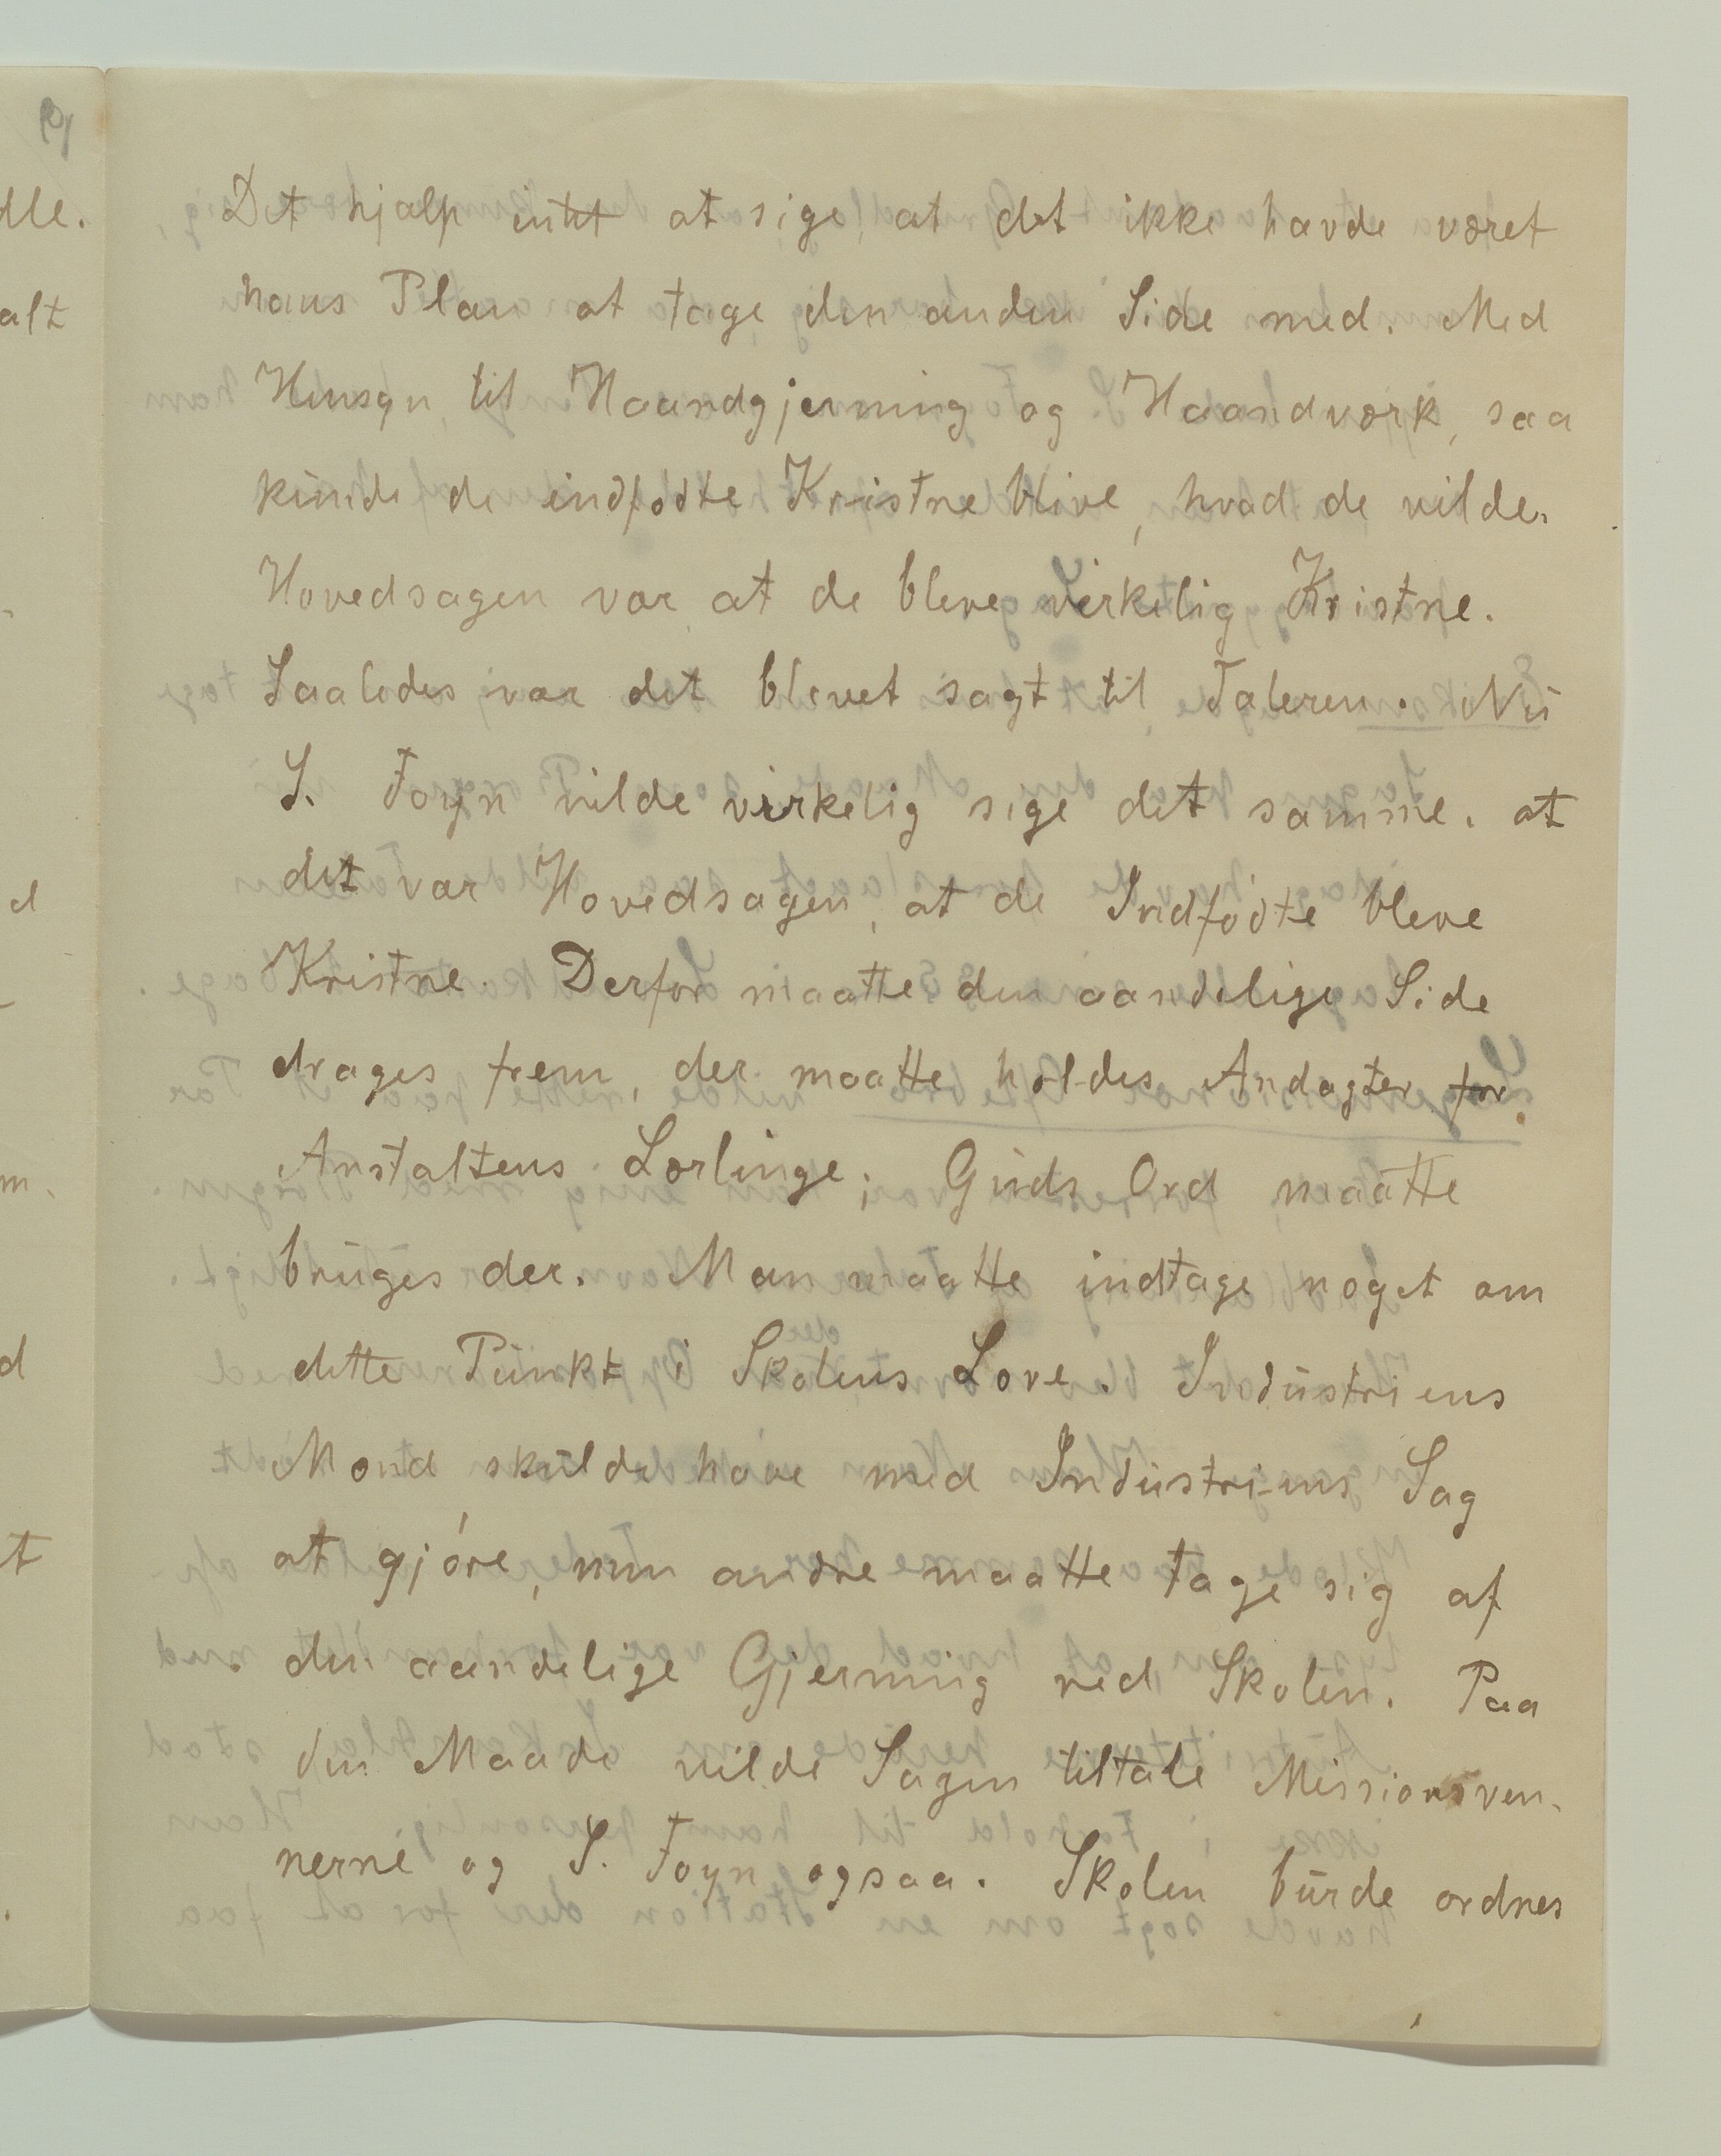 dle.
alt
d
m.
d
t
Det hjalp intet at sige, at det ikke havde været
hans Plan at tage den anden Side med. Med
Hensyn til Haandgjerning og Haandværk, saa
kunde de indfødte Kristne blive, hvad de vilde.
Hovedsagen var at de bleve virkelig Kristne.
Saaledes var det blevet sagt til Taleren. Nu
S. Foyn vilde virkelig sige det samme, at
det var Hovedsagen, at de Indfødte bleve
Kristne. Derfor maatte den aandelige Side
drages frem, der maatte holdes Andagter for
Anstaltens Lærlinge; Guds Ord maatte
bruges der. Man maatte indtage noget om
dette Punkt i Skolens Love. Industriens
Mænd skulde have med Industriens Sag
at gjøre, men andre maatte tage sig af
den aandelige Gjerning ved Skolen. Paa
den Maade vilde Sagen tiltale Missionsven-
nerne og S. Foyn ogsaa. Skolen burde ordnes